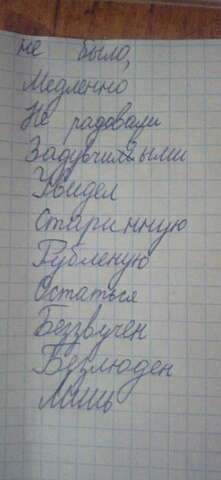 не было,
Медленно
Не радовали
Задувчивыми
Увидел
Старинную
Рубленую
Остаться
Беззвучен
Безлюден
Лишь